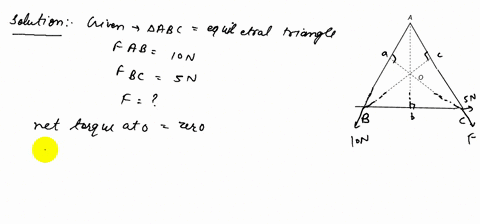 Solution:- Given → ΔABC = equiletral triangle
F AB = 10N
F BC = 5N
F = ?
net torque at o = zero
A
a
c
O
5N
B
b
C
10N
F